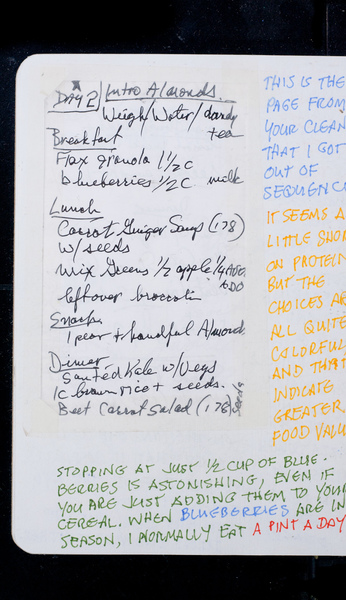 DAY 2 / Intro Almonds.
Weigh/Water/dandy
tea
Breakfast
Flax granola 1 1/2 C
blueberries 1/2 C milk
Lunch
Carrot Ginger Soup (178)
w/ seeds
Mix Greens 1/2 apple 1/4 AVOC
ADO
leftover broccoli
Snack
1 pear + handful Almond
Dinner
Sautéd Kale w/ Vegs
1c brown rice + seeds.
Beet Carrot Salad (178)
THIS IS THE
PAGE FROM
YOUR CLEAN
THAT I GOT
OUT OF
SEQUENC
IT SEEMS A
LITTLE SHOR
ON PROTEIN
BUT THE
CHOICES AR
ALL QUITE
COLORFUL
AND THAT
INDICATE
GREATER
FOOD VALU
STOPPING AT JUST 1/2 CUP OF BLUE-
BERRIES IS ASTONISHING, EVEN IF
YOU ARE JUST ADDING THEM TO YOUR
CEREAL. WHEN BLUEBERRIES ARE IN
SEASON, I NORMALLY EAT A PINT A DAY